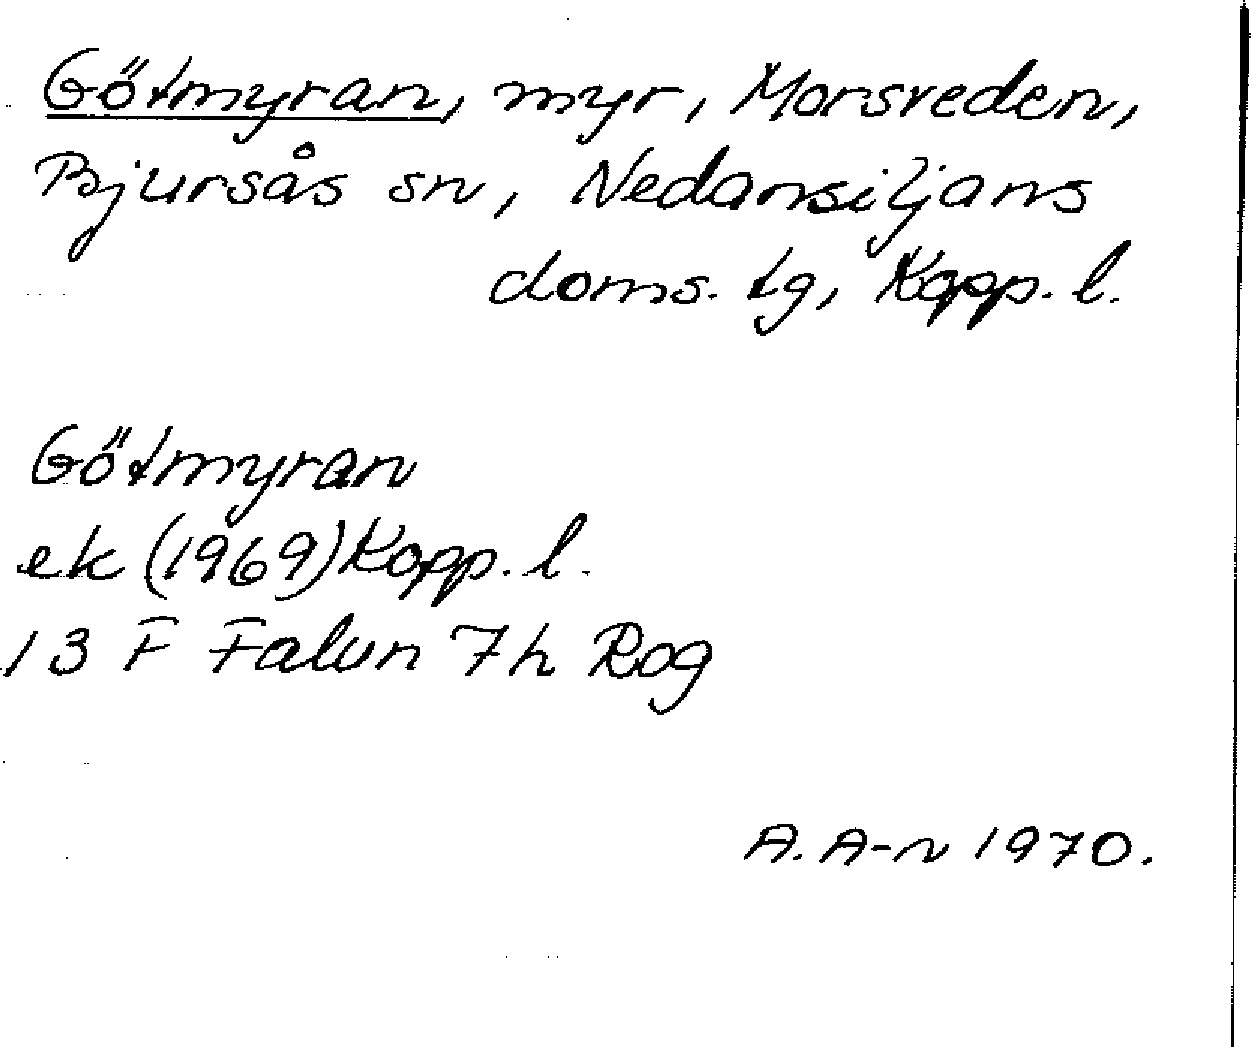 Götmyran, myr, Morsveden,
Bjursås sn, Nedansiljans
doms. tg, Kopp. l.
Götmyran
ek (1969) Kopp. l.
13 F Falun 7h Rog
A. A-n 1970.